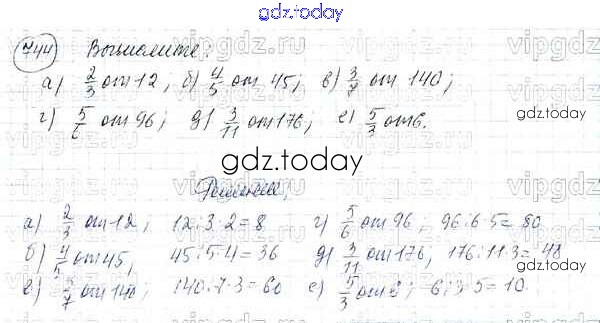 gdz.today
744 Вычислите:
а) 2/3 от 12; б) 4/5 от 45; в) 3/7 от 140;
г) 5/6 от 96; д) 3/11 от 176; е) 5/3 от 6.
gdz.today
gdz.today
Решение,
а) 2/3 от 12; 12:3·2=8 г) 5/6 от 96, 96:6·5=80
б) 4/5 от 45, 45:5·4=36 д) 3/11 от 176, 176:11·3=48
в) 3/7 от 140; 140:7·3=60 е) 5/3 от 6; 6:3·5=10.
vipgdz.ru